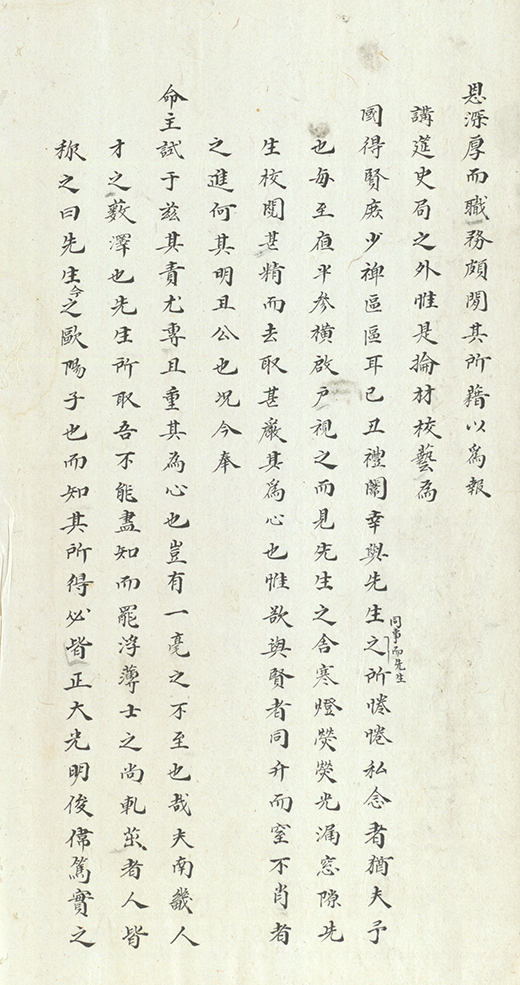 恩深厚而職務頗閒其所藉以為報
講筵史局之外惟是掄材校藝為
國得賢庶少裨區區耳己丑禮闈幸與先生之所惓惓私念者猶夫予
同事而先生
也每至夜半參橫啟戶視之而見先生之舍寒燈熒熒光漏窓隙先
生校閱甚精而去取甚嚴其為心也惟欲與賢者同升而窒不肖者
之進何其明且公也况今奉
命主試于茲其責尤專且重其為心也豈有一毫之不至也哉夫南畿人
才之藪澤也先生所取吾不能盡知而罷浮薄士之尚軋茁者人皆
称之曰先生今之歐陽子也而知其所得必皆正大光明俊偉篤實之